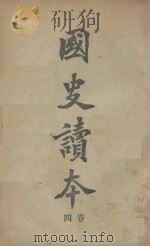 國史讀本
卷四
mtoou.info